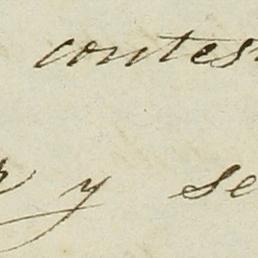 contes
y se